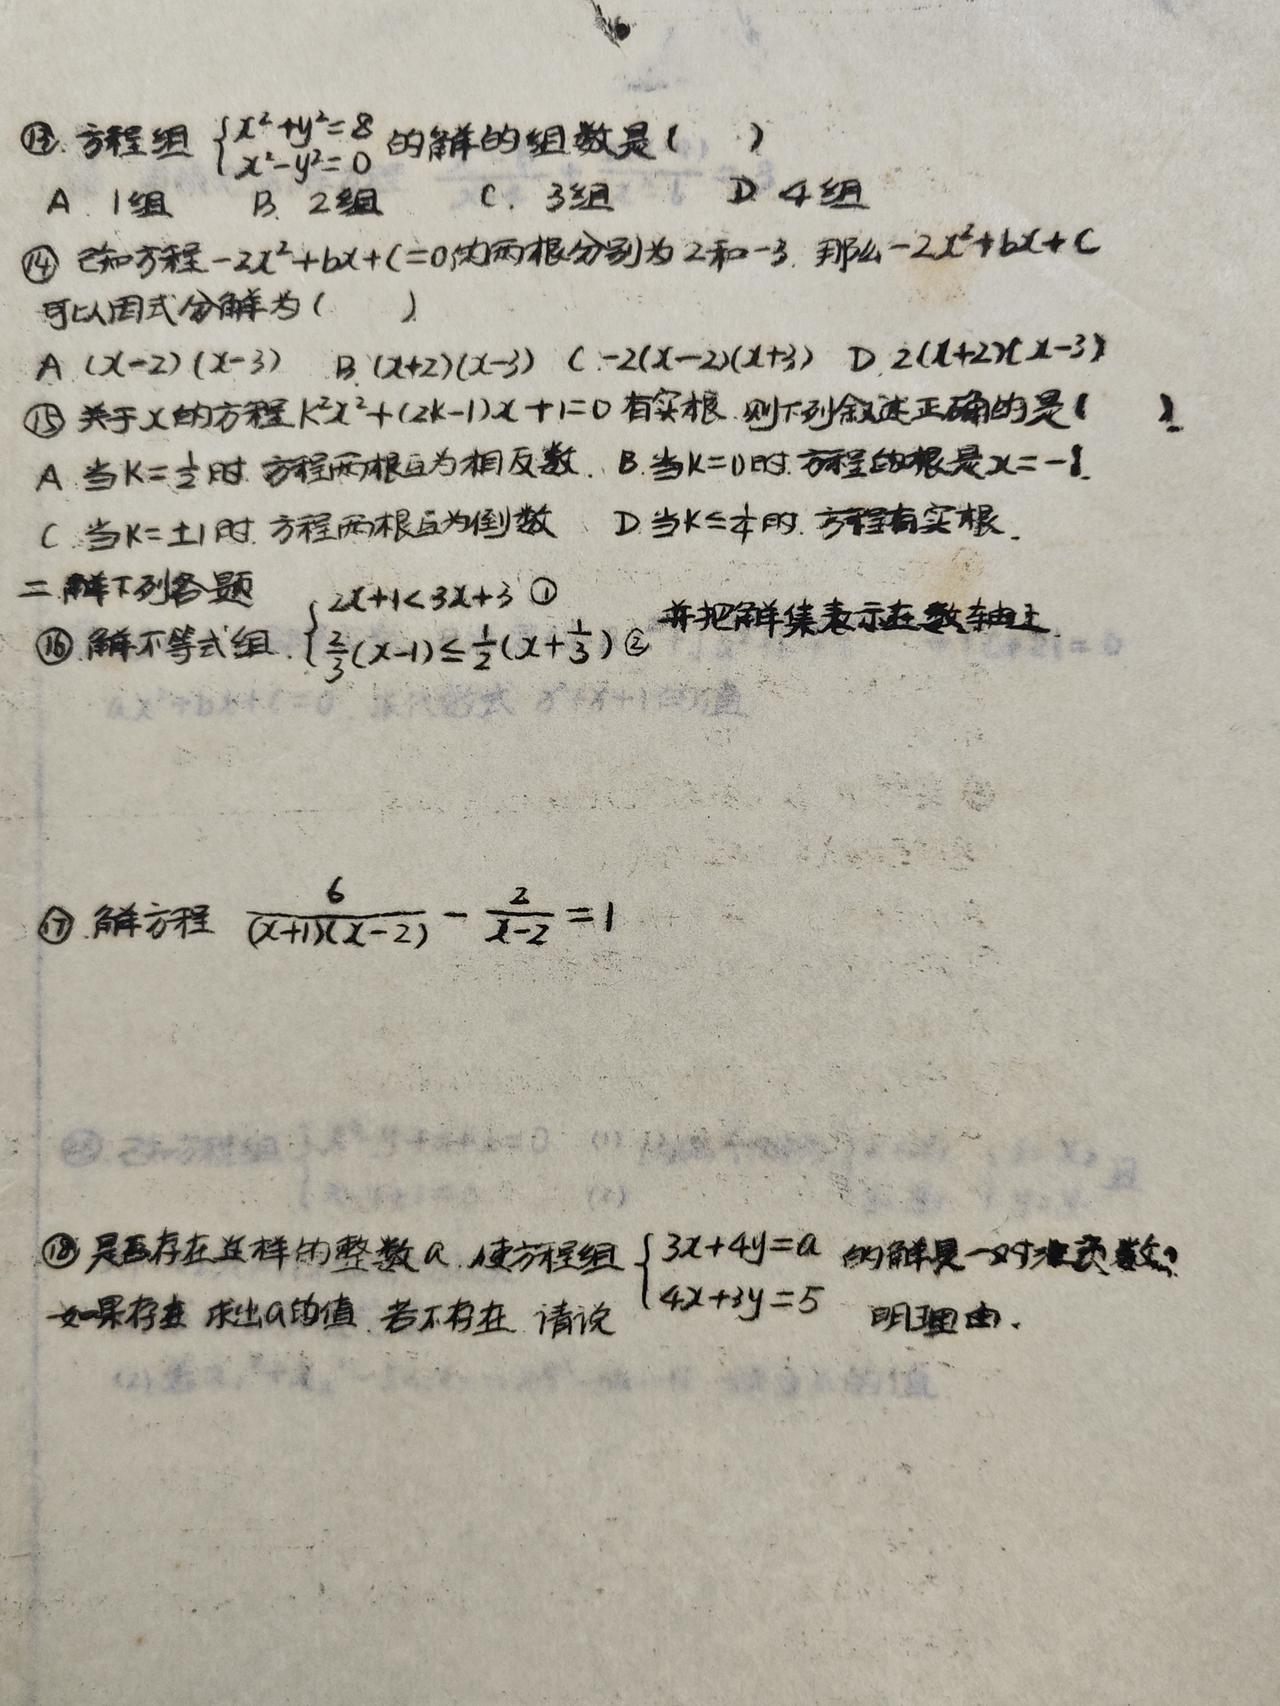 ⑬.方程组 {x²+y²=8 的解的组数是(  )
{x²-y²=0
A. 1组  B. 2组  C. 3组  D. 4组
⑭ 已知方程-2x²+bx+c=0的两根分别为2和-3. 那么-2x²+bx+c
可以因式分解为(  )
A (x-2)(x-3)  B.(x+2)(x-3)  C.-2(x-2)(x+3)  D.2(x+2)(x-3)
⑮ 关于x的方程k²x²+(2k-1)x+1=0有实根.则下列叙述正确的是(  ).
A 当k=1/2时.方程两根互为相反数.  B.当k=0时.方程的根是x=-1.
C.当k=±1时.方程两根互为倒数  D.当k≤1/4时.方程有实根.
二.解下列各题
⑯.解不等式组.{2x+1<3x+3 ① 并把解集表示在数轴上.
{2/3(x-1)≤1/2(x+1/3) ②
⑰.解方程 6/((x+1)(x-2)) - 2/(x-2) =1
⑱.是否存在这样的整数a.使方程组{3x+4y=a 的解是一对非负数?
{4x+3y=5
如果存在 求出a的值.若不存在.请说明理由.